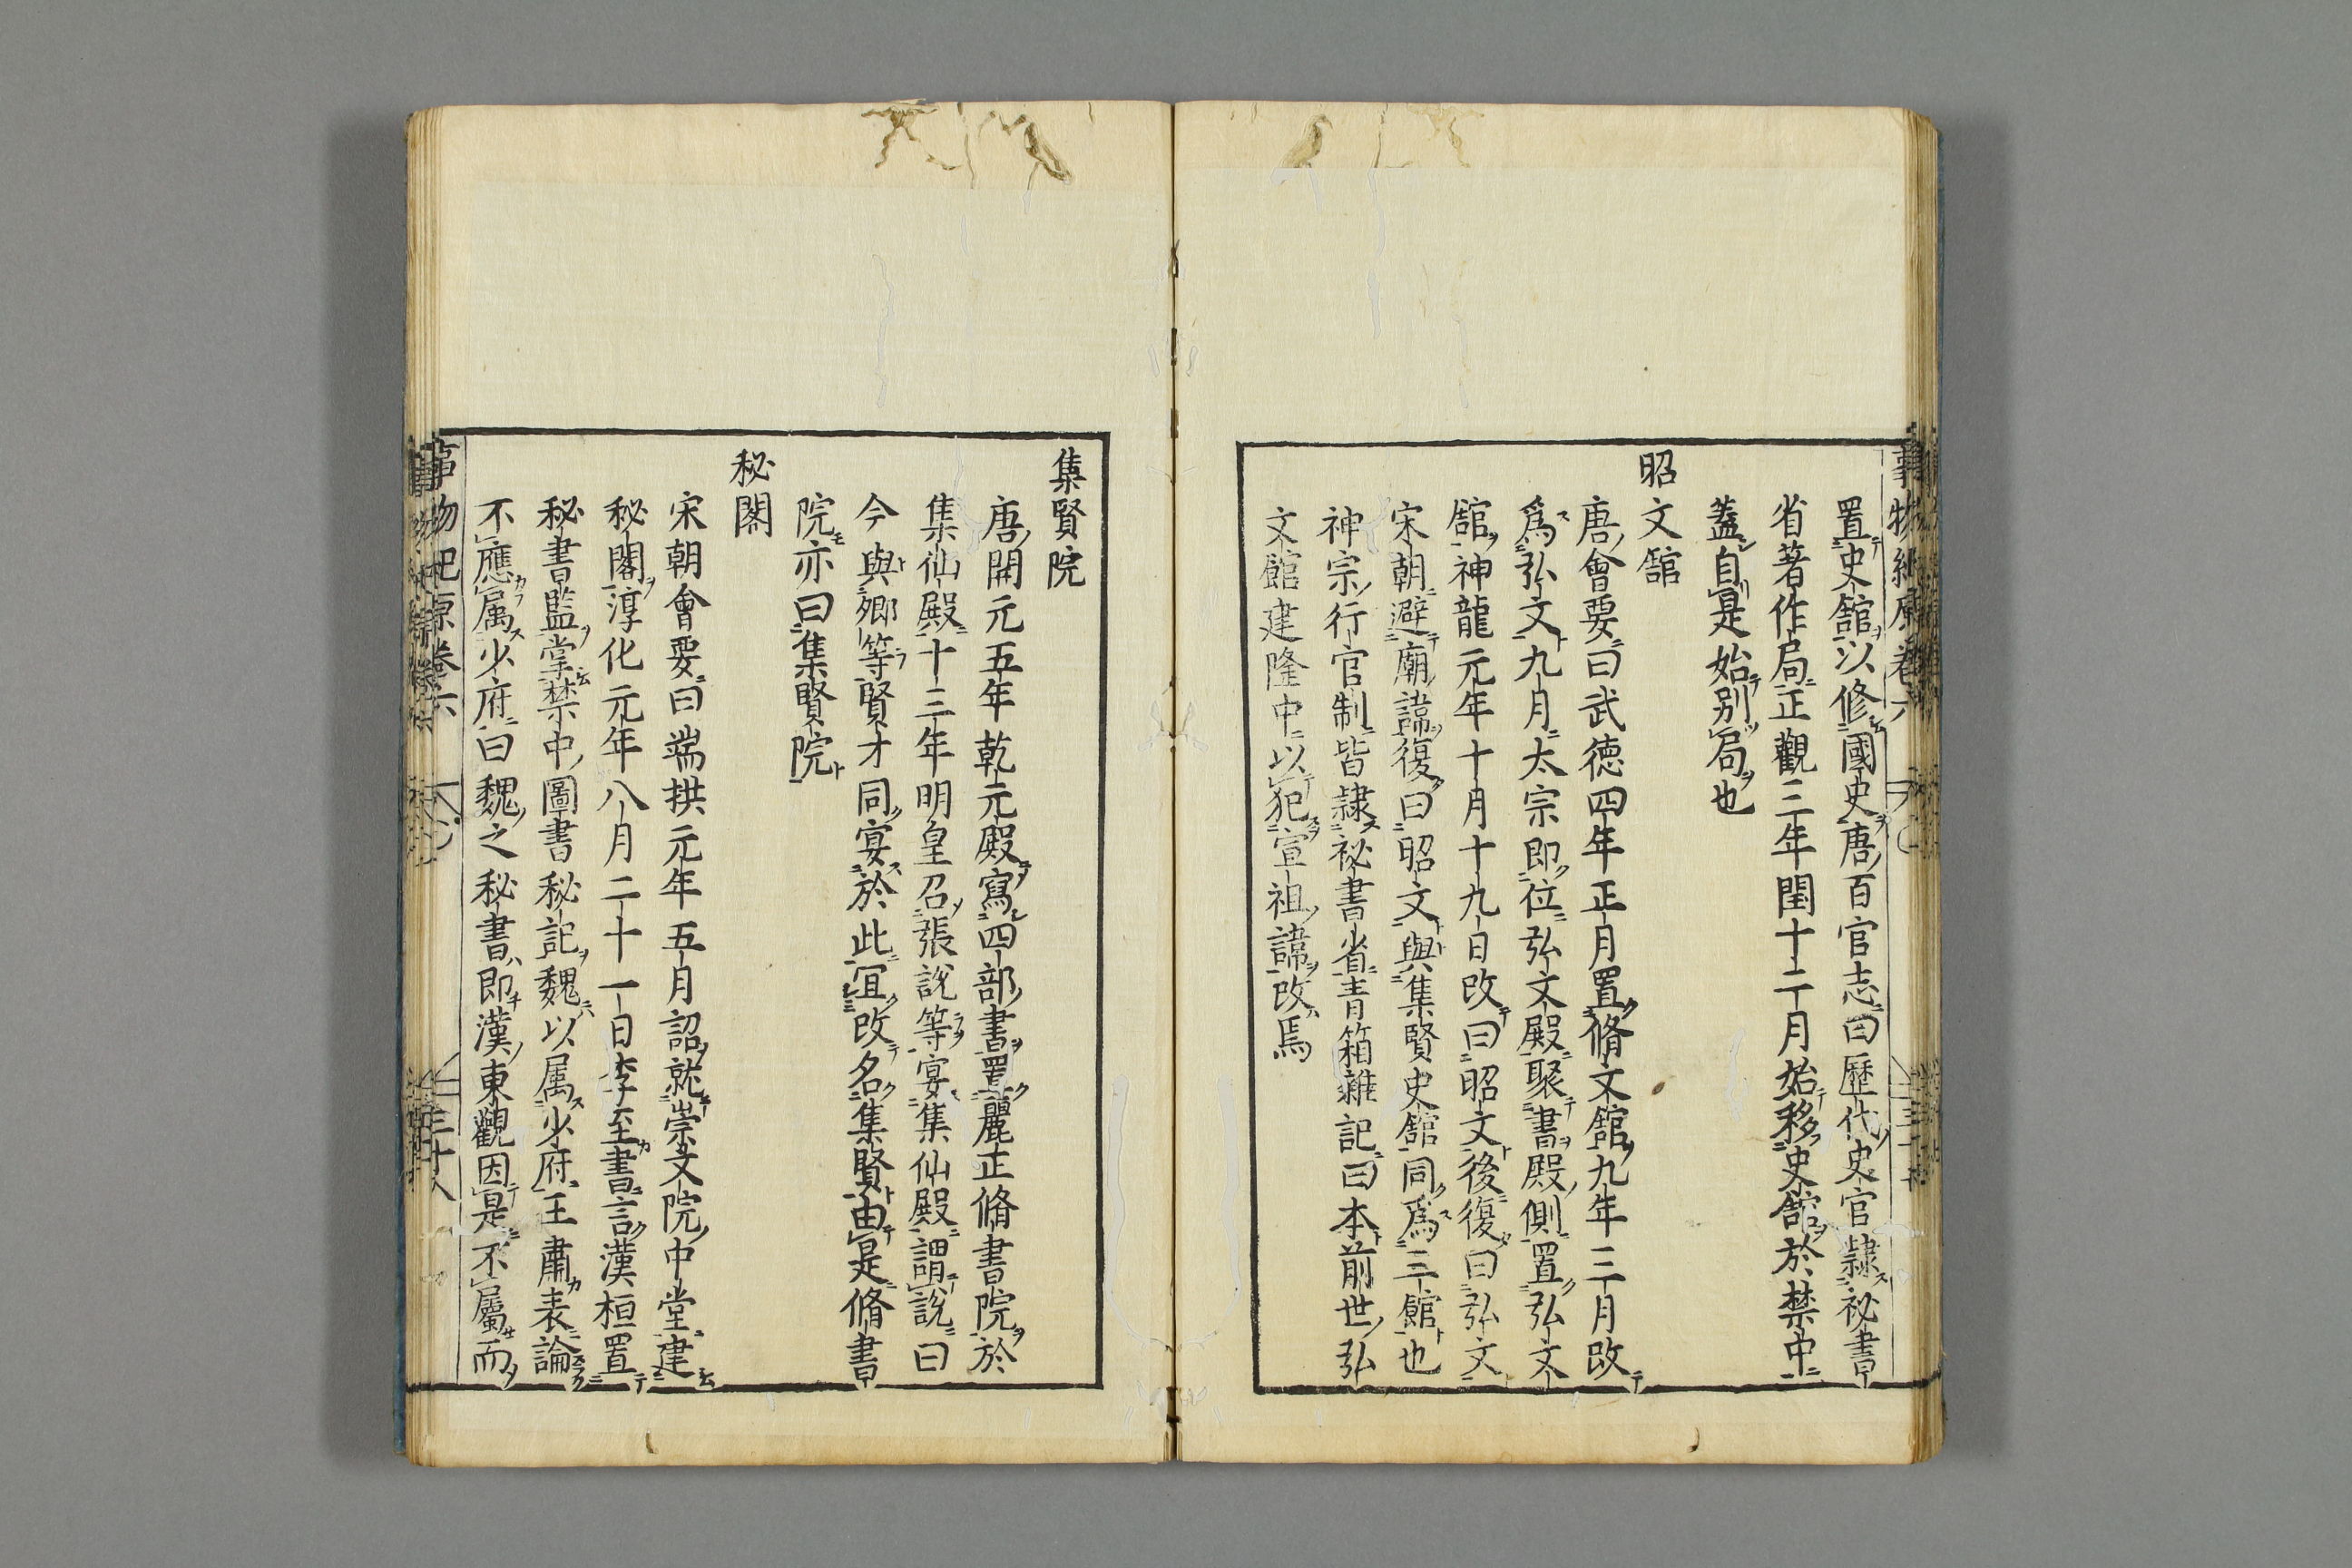 置史舘以修國史唐百官志曰歷代史官隷祕書
省著作局正觀三年閏十二月始移史舘於禁中
蓋自是始別局也
昭文舘
唐會要曰武德四年正月置脩文舘九年三月改
爲弘文九月太宗即位弘文殿聚書殿側置弘文
舘神龍元年十月十九日改曰昭文後復曰弘文
宋朝避廟諱復曰昭文與集賢史舘同爲三館也
神宗行官制皆隷祕書省青箱雜記曰本前世弘
文館建隆中以犯宣祖諱改焉
集賢院
唐開元五年乾元殿寫四部書置麗正脩書院於
集仙殿十三年明皇召張説等宴集仙殿謂説曰
今與卿等賢才同宴於此宜改名集賢由是脩書
院亦曰集賢院
秘閣
宋朝會要曰端拱元年五月詔就崇文院中堂建
秘閣淳化元年八月二十一日李至書言漢桓置
秘書監掌禁中圖書秘記魏以属少府王肅表論
不應属少府曰魏之秘書即漢東觀因是不屬而
事物紀原卷六
三十八